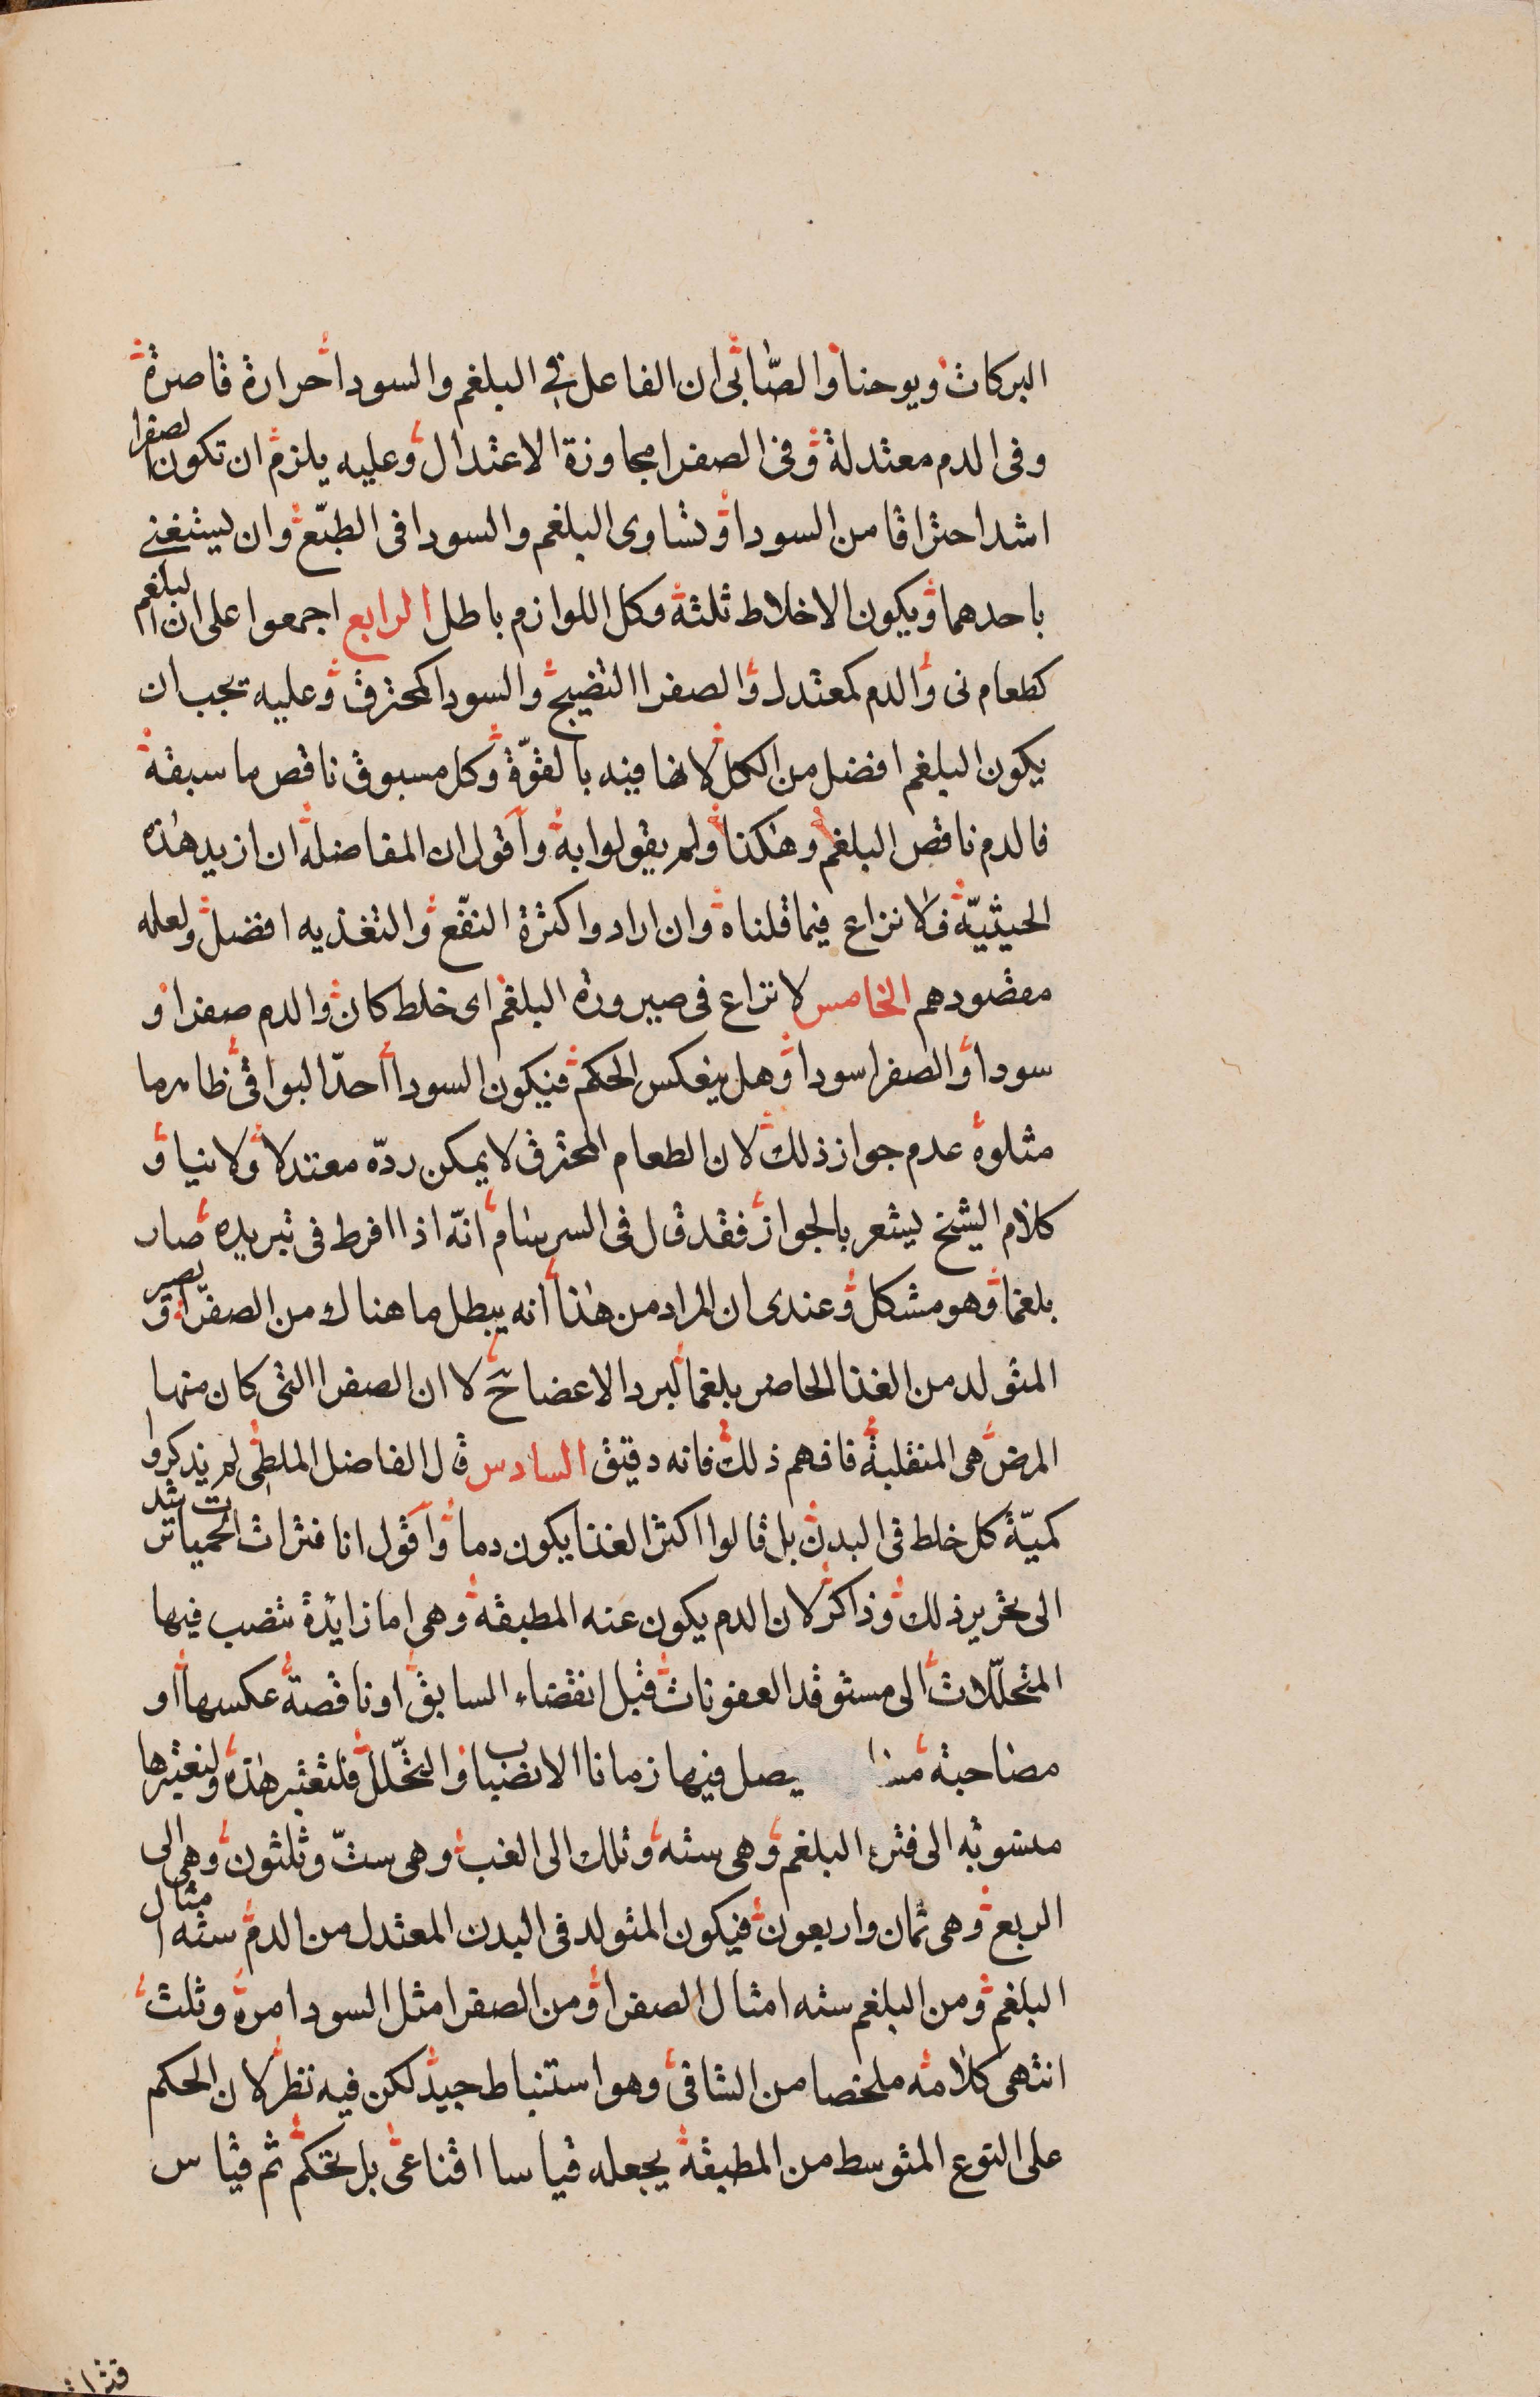 البركات ويوحنا والصابى ان الفاعل فى البلغم والسودا حرارة قاصرة
وفى الدم معتدلة وفى الصفرا مجاوزة الاعتدال وعليه يلزم ان تكون الصفرا
اشد احتراقا من السودا وتساوى البلغم والسودا فى الطبّع وان ليستغنى
باحدهما ويكون الاخلاط ثلثة وكل اللوازم باطل الرابع اجمعوا على ان البلغم
كطعام نى والدم كمعتدل والصفرا النضيج والسودا كمحترق وعليه يجب ان
يكون البلغم افضل من الكل لانها فيه بالقوّة وكل مسبوق ناقص ما سبقه
فالدم ناقص البلغم وهكذا ولم يقولوا به واقول ان المفاضلة ان ازيد هذه
الحيثيّة فلا نزاع فيما قلناه وان ارادوا كثرة النفّع والتغذيه افضل ولعله
مقصودهم الخامس لا نزاع فى صيرورة البلغم اى خلط كان والدم صفرا و
سودا والصفرا سودا وهل ينعكس الحكم فيكون السودا احدّ البواقى ظاهر ما
مثلوه عدم جواز ذلك لان الطعام المحترق لا يمكن ردّه معتدلا ولا نيا و
كلام الشيخ ليشعر بالجواز فقد قال فى السرسام انّه اذا افرط فى تبريده صار
بلغما وهو مشكل وعندى ان المراد من هذا انه يبطل ما هناك من الصفرّا ويصير
المتولد من الغذا الحاضر بلغما لبرد الاعضا ح لا ان الصفرا التى كان منها
المرض هى المنقلبة فافهم ذلك فانه دقيق السادس قال الفاضل الملطى لم يذكروا
كميّة كل خلط فى البدن بل قالوا اكثر الغذا يكون دما واقول انا فترات الحميات ترشد
الى تحرير ذلك وذاكر لان الدم يكون عنه المطبقه وهى اما زايدة تنصب فيها
المتحلّلات الى مستوقد العفونات قبل انقضاء السابق او ناقصة عكسها او
مصاحبة يصل فيها زمانا الانضباب والتحّلل فلتعتبر هذه ولنعتبرها
منسوبه الى فترة البلغم وهى سته وتلك الى الغب وهى ستّ وثلثون وهى الى
الربع وهى ثمان واربعون فيكون المتولد فى البدن المعتدل من الدم سته امثال
البلغم ومن البلغم سته امثال الصفرا ومن الصفرا مثل السودا مرة وثلث
انتهى كلامه ملخصا من الشافى وهو استنباط جيد لكن فيه نظر لان الحكم
على النوع المتوسط من المطبقة يجعله قياسا اقناعى بل تحكم ثم قياس